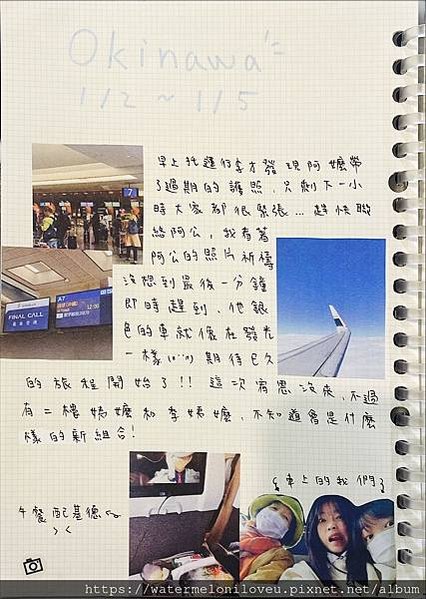 Okinawa
1/2 ~ 1/5
早上託運行李才發現阿嬤帶
了過期的護照，只剩下一小
時大家都很緊張...趕快聯
絡阿公，我看著
阿公的照片祈禱
沒想到最後一分鐘
即時趕到，他銀
色的車就像在發光
一樣 期待已久
的旅程開始了!! 這次宥恩沒來，不過
有二樓姨嬤和李姨嬤，不知道會是什麼
樣的新組合!
車上的我們
午餐配基德
7
FINAL CALL
A7
12:00
https://watermeloniloveu.pixnet.net/album